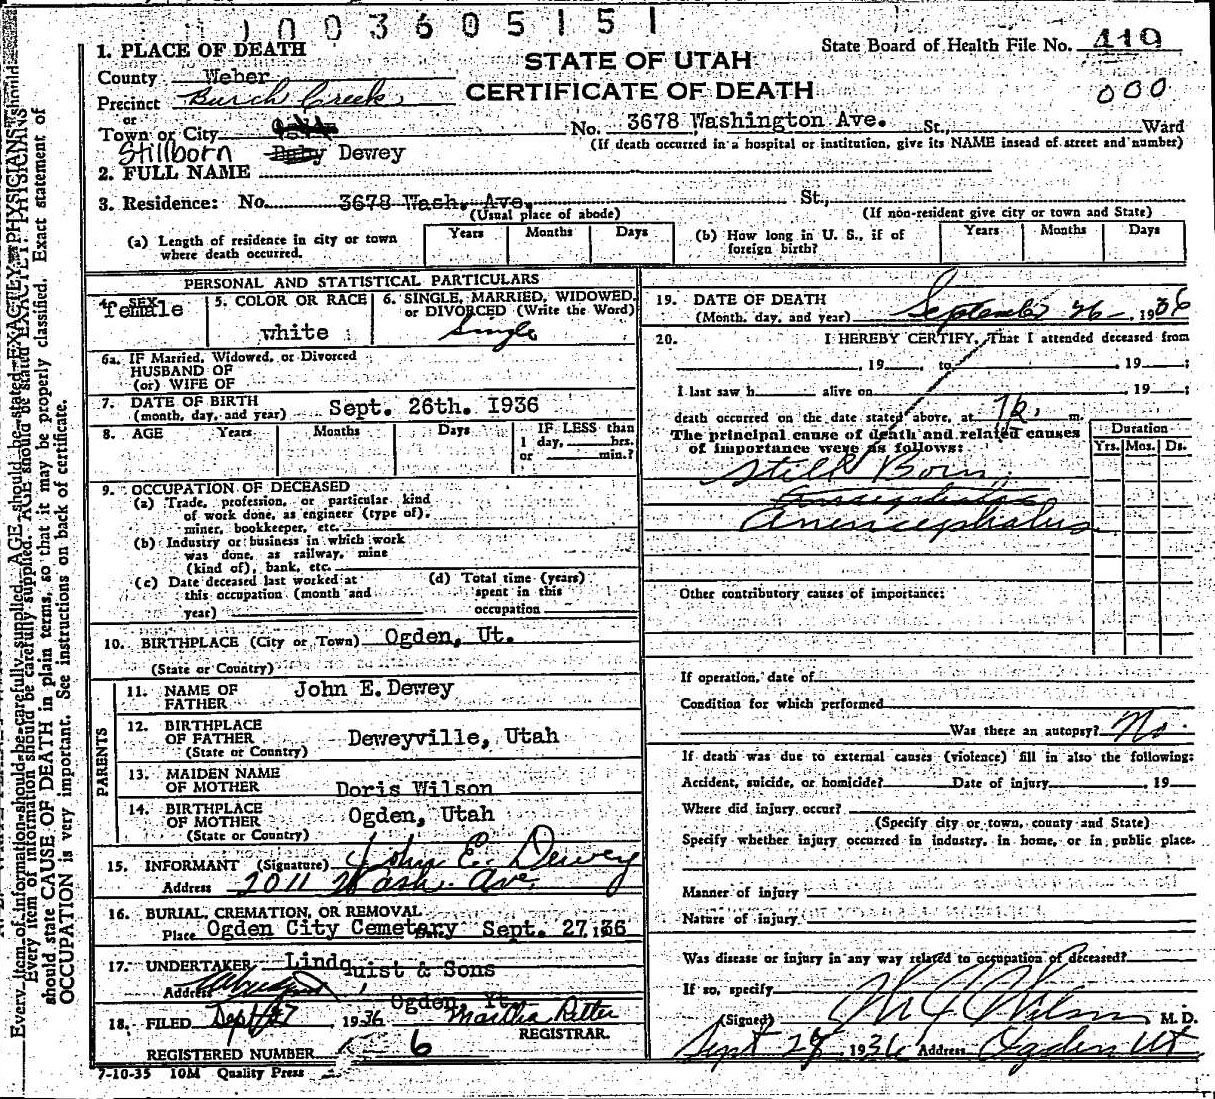 1003605151
1. PLACE OF DEATH
County Weber
Precinct Burch Creek
or
Town or City
STATE OF UTAH
CERTIFICATE OF DEATH
State Board of Health File No. 419
000
No. 3678 Washington Ave. St., Ward
(If death occurred in a hospital or institution, give its NAME insead of street and number)
Stillborn Baby Dewey
2. FULL NAME
3. Residence: No. 3678 Wash. Ave. St.,
(Usual place of abode)
(If non-resident give city or town and State)
(a) Length of residence in city or town where death occurred.
Years Months Days
(b) How long in U. S., if of foreign birth?
Years Months Days
PERSONAL AND STATISTICAL PARTICULARS
4. SEX
female
5. COLOR OR RACE
white
6. SINGLE, MARRIED, WIDOWED,
or DIVORCED (Write the Word)
Single
6a. IF Married, Widowed, or Divorced
HUSBAND OF
(or) WIFE OF
7. DATE OF BIRTH
(month, day, and year) Sept. 26th. 1936
8. AGE Years Months Days
IF LESS than
1 day, hrs.
or min.?
9. OCCUPATION OF DECEASED
(a) Trade, profession, or particular kind
of work done, as engineer (type of),
miner, bookkeeper, etc.
(b) Industry or business in which work
was done, as railway, mine
(kind of), bank, etc.
(c) Date deceased last worked at
this occupation (month and
year)
(d) Total time (years)
spent in this
occupation
10. BIRTHPLACE (City or Town) Ogden, Ut.
(State or Country)
PARENTS
11. NAME OF
FATHER
John E. Dewey
12. BIRTHPLACE
OF FATHER
(State or Country)
Deweyville, Utah
13. MAIDEN NAME
OF MOTHER
Doris Wilson
14. BIRTHPLACE
OF MOTHER
(State or Country)
Ogden, Utah
15. INFORMANT (Signature) John E. Dewey
Address 2011 Wash. Ave.
16. BURIAL, CREMATION, OR REMOVAL
Place Ogden City Cemetary Sept. 27, 1936
17. UNDERTAKER Lindquist & Sons
Address
Ogden, Yt.
18. FILED Sept 27 1936 Martha Ritter
REGISTRAR.
REGISTERED NUMBER 6
7-10-35 10M Quality Press
19. DATE OF DEATH
(Month, day, and year) September 26 1936
20. I HEREBY CERTIFY, That I attended deceased from
, 19 , to , 19 ;
I last saw h alive on , 19 ;
death occurred on the date stated above, at m.
The principal cause of death and related causes
of importance were as follows:
Duration
Yrs. Mos. Ds.
Still Born
Anencephalus
Other contributory causes of importance:
If operation, date of
Condition for which performed
Was there an autopsy? No
If death was due to external causes (violence) fill in also the following:
Accident, suicide, or homicide? Date of injury , 19
Where did injury occur?
(Specify city or town, county and State)
Specify whether injury occurred in industry, in home, or in public place.
Manner of injury
Nature of injury
Was disease or injury in any way related to occupation of deceased?
If so, specify
(Signed) Wilson M. D.
Sept 28 1936 Address Ogden Ut
Every item of information should be carefully supplied. AGE should be stated EXACTLY. PHYSICIANS
should state CAUSE OF DEATH in plain terms, so that it may be properly classified. Exact statement of
OCCUPATION is very important. See instructions on back of certificate.